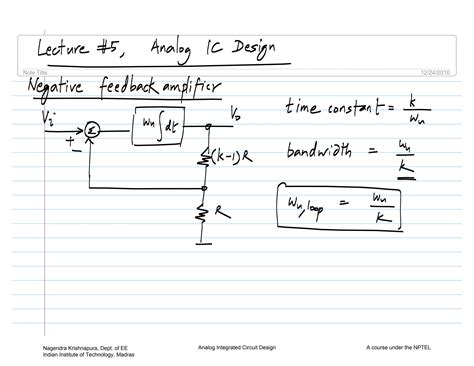 Lecture #5, Analog IC Design
Note Title
12/24/2010
Negative feedback amplifier
Vi
+
−
Σ
ωu ∫ dt
Vo
(k-1)R
R
time constant = k/ωu
bandwidth = ωu/k
ωu,loop = ωu/k
Nagendra Krishnapura, Dept. of EE
Indian Institute of Technology, Madras
Analog Integrated Circuit Design
A course under the NPTEL